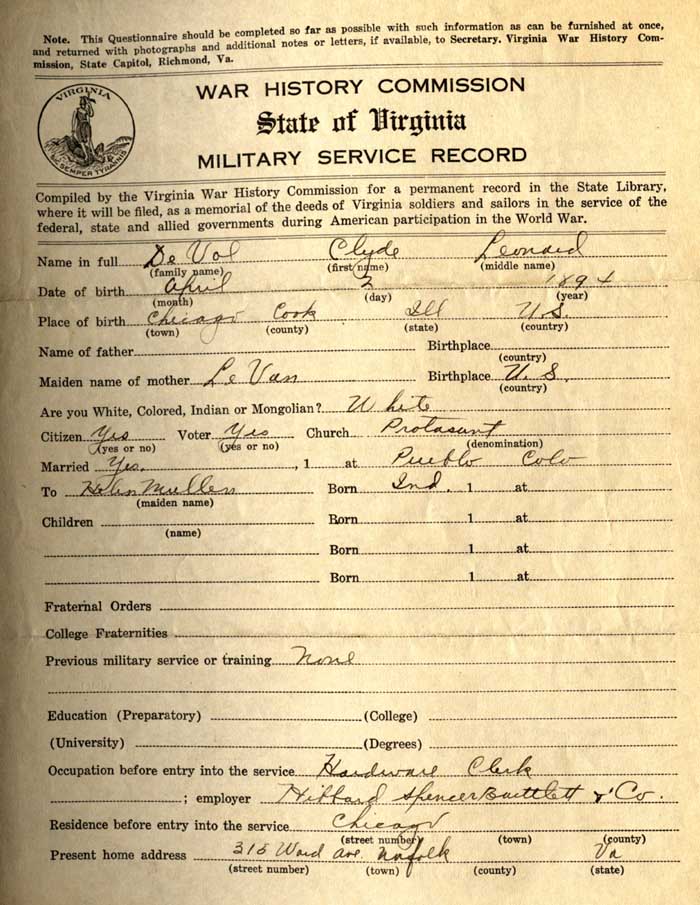 Note. This Questionnaire should be completed so far as possible with such information as can be furnished at once,
and returned with photographs and additional notes or letters, if available, to Secretary. Virginia War History Com-
mission, State Capitol, Richmond, Va.
VIRGINIA
SIC SEMPER TYRANNIS
WAR HISTORY COMMISSION
State of Virginia
MILITARY SERVICE RECORD
Compiled by the Virginia War History Commission for a permanent record in the State Library,
where it will be filed, as a memorial of the deeds of Virginia soldiers and sailors in the service of the
federal, state and allied governments during American participation in the World War.
Name in full De Vol Clyde Leonard
(family name) (first name) (middle name)
Date of birth April 2 1894
(month) (day) (year)
Place of birth Chicago Cook Ill U.S.
(town) (county) (state) (country)
Name of father Birthplace
(country)
Maiden name of mother Le Van Birthplace U.S.
(country)
Are you White, Colored, Indian or Mongolian? White
Citizen Yes Voter Yes Church Protasant
(yes or no) (yes or no) (denomination)
Married Yes. , 1 at Pueblo Colo
To Helen Mullen Born Ind. 1 at
(maiden name)
Children Born 1 at
(name)
Born 1 at
Born 1 at
Fraternal Orders
College Fraternities
Previous military service or training None
Education (Preparatory) (College)
(University) (Degrees)
Occupation before entry into the service Hardware Clerk
; employer Hibbard Spencer Bartlett & Co.
Residence before entry into the service Chicago
(street number) (town) (county)
Present home address 315 Ward Ave. Norfolk Va
(street number) (town) (county) (state)